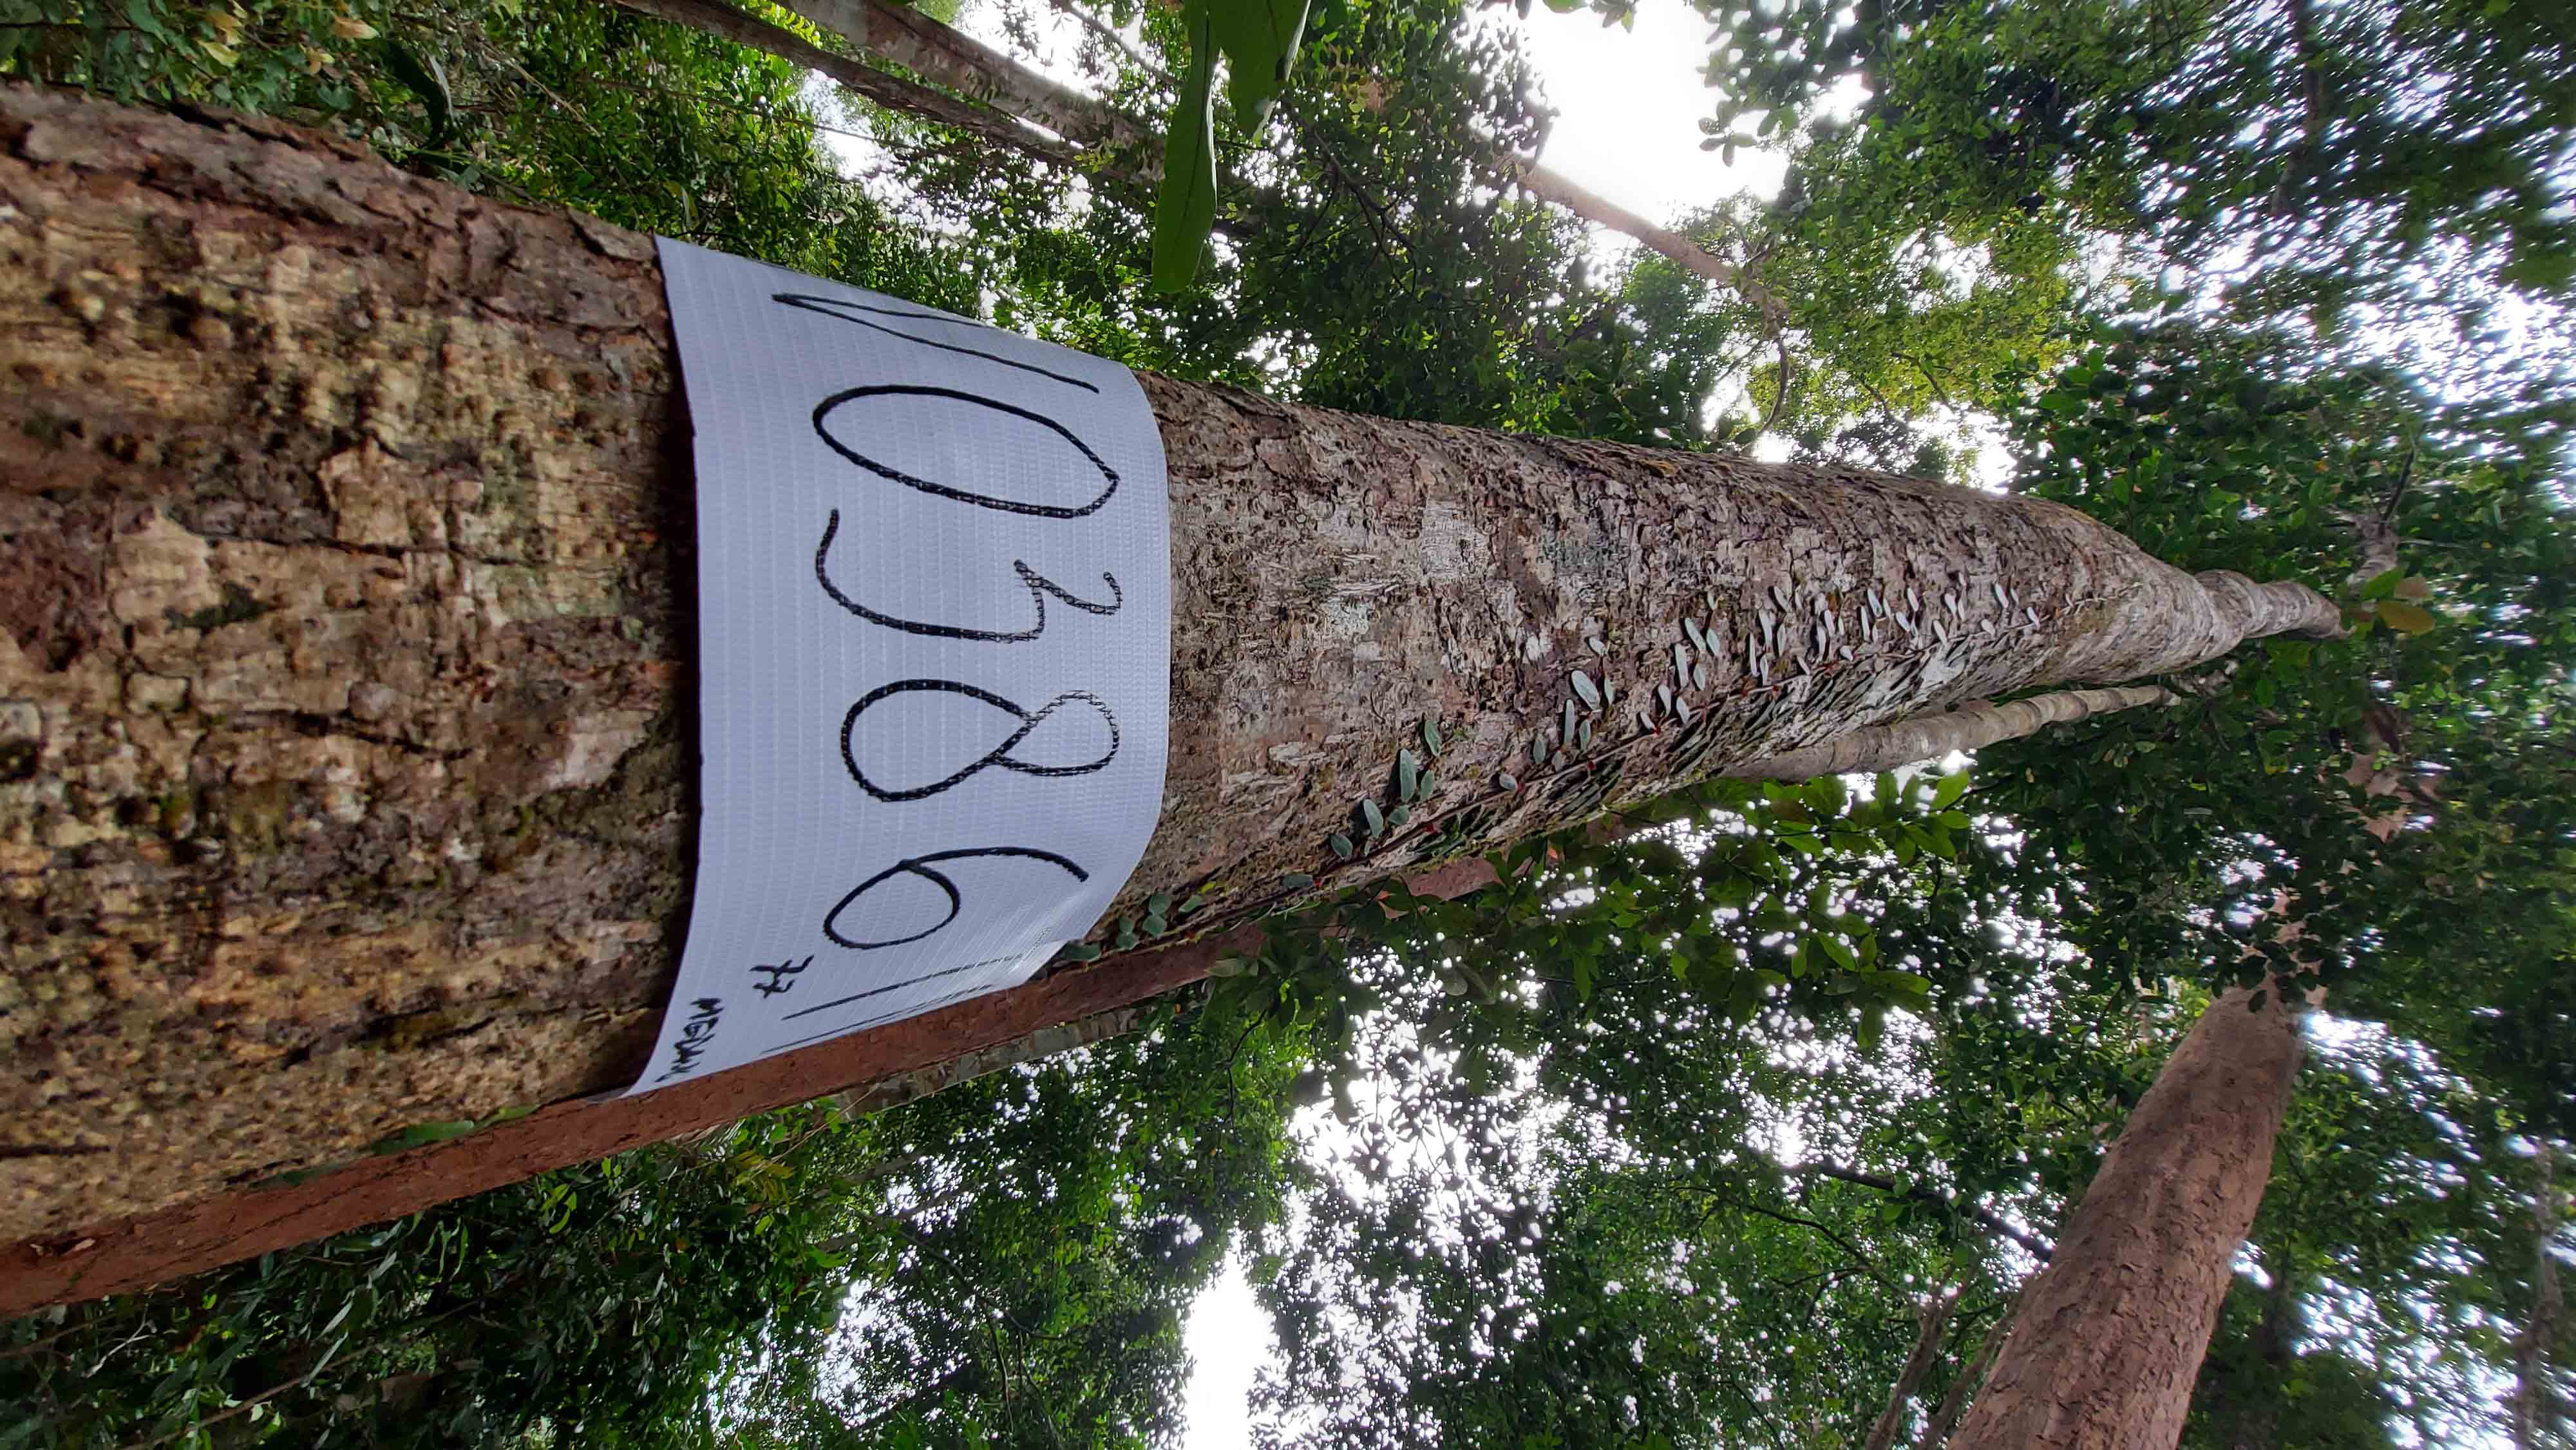 V0386
77
MEDAN